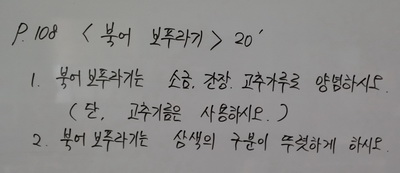 P.108 < 북어 보푸라기 > 20'
1. 북어 보푸라기는 소금, 간장. 고추가루로 양념하시오.
( 단, 고추기름은 사용하시오. )
2. 북어 보푸라기는 삼색의 구분이 뚜렷하게 하시오.